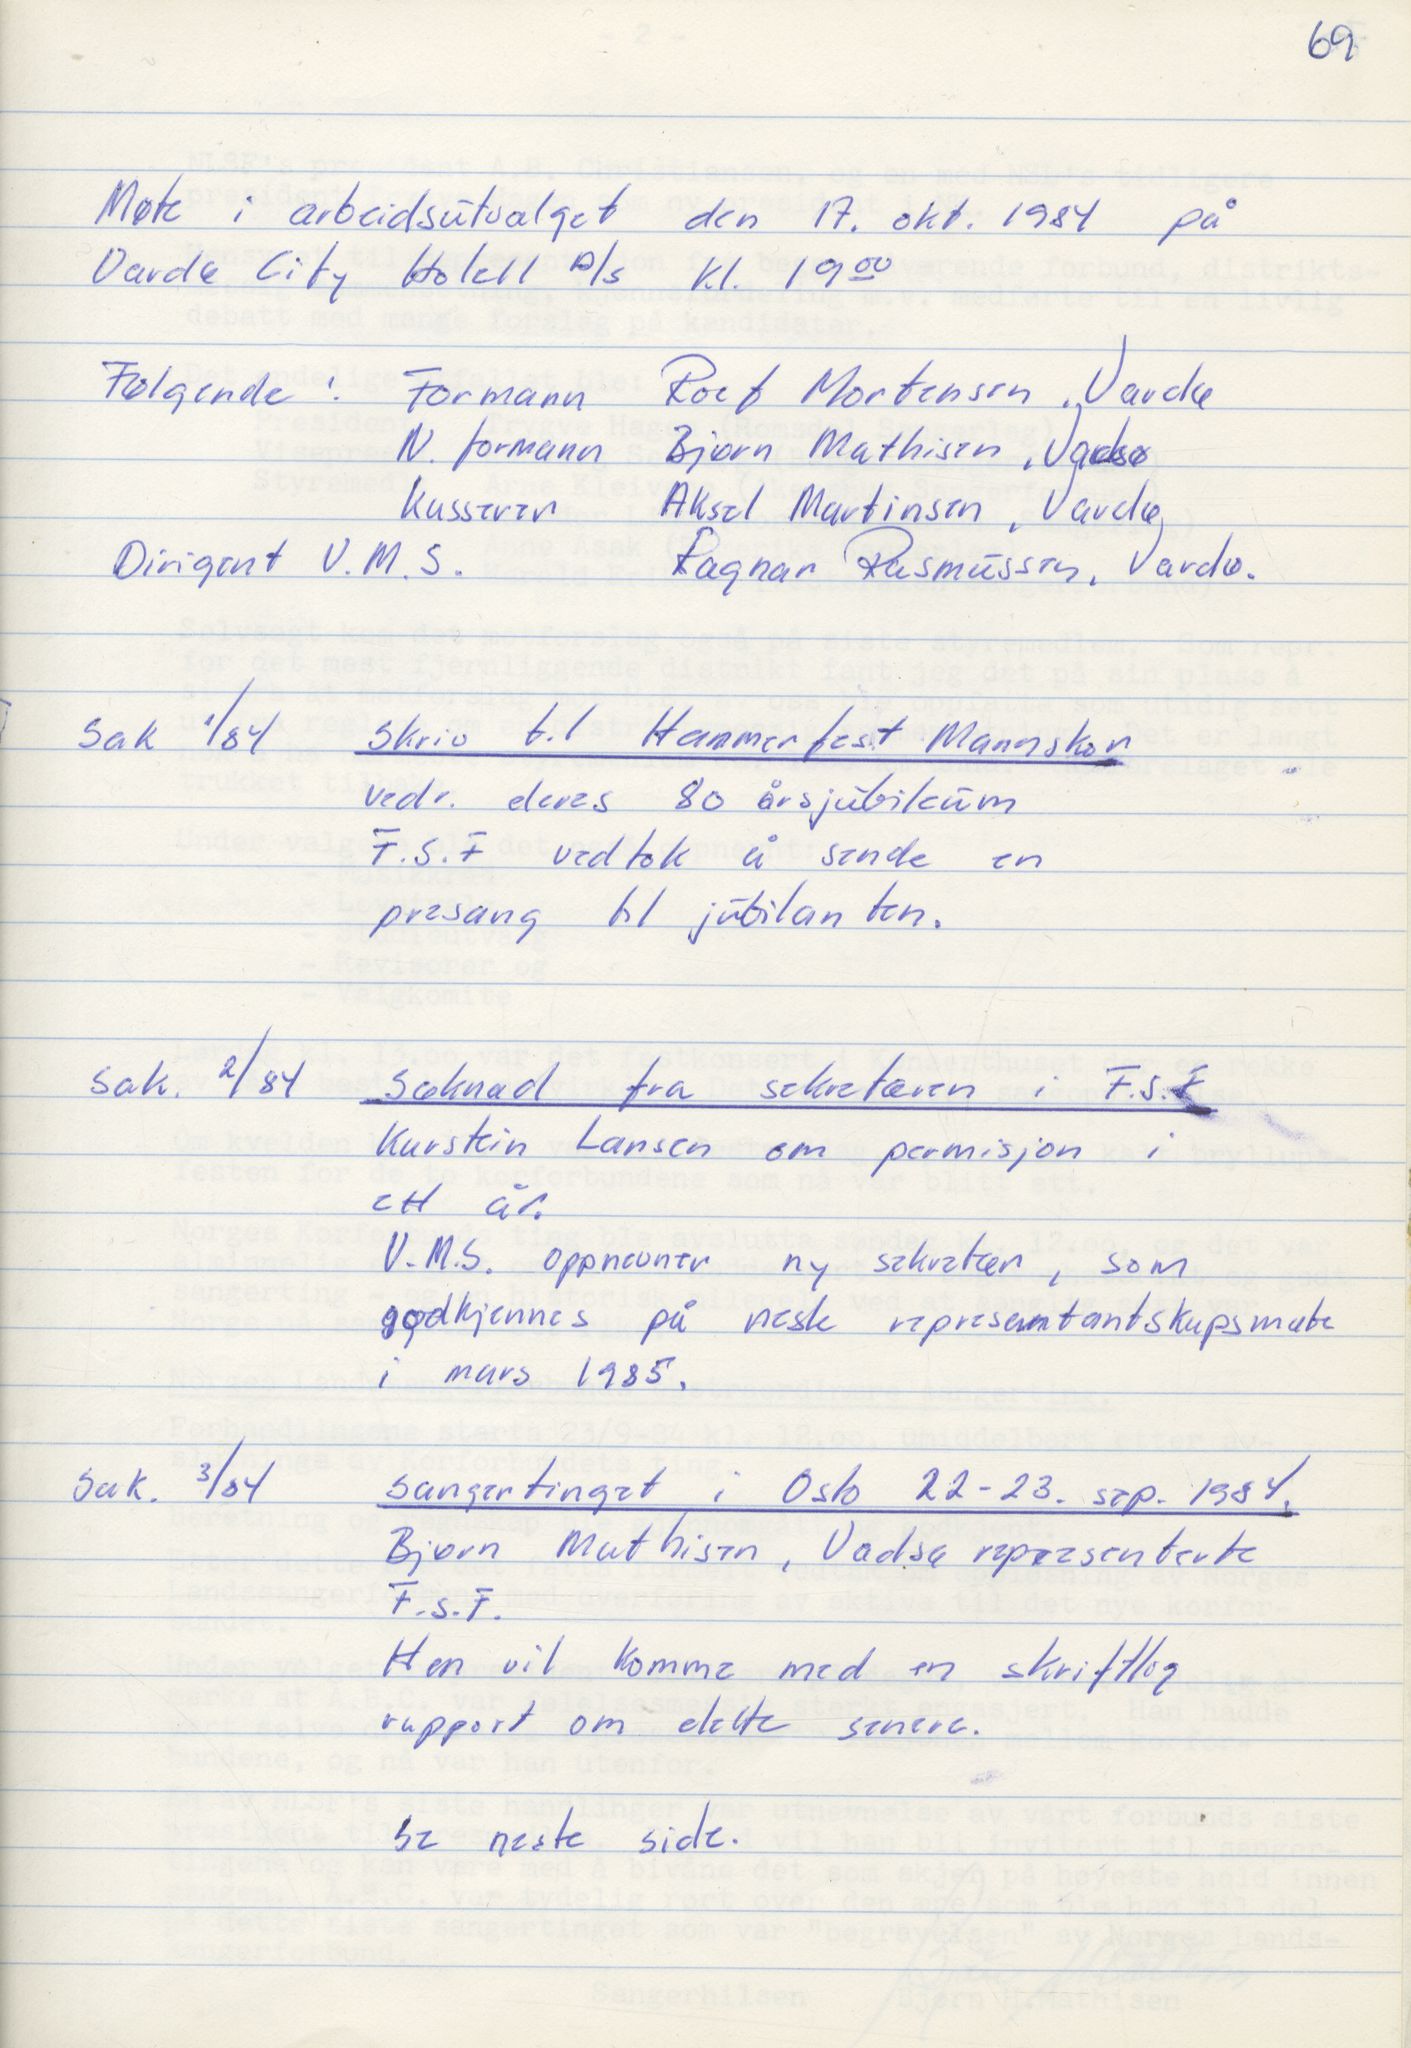 69
Møte i arbeidsutvalget den 17. okt. 1984 på
Vardø City Hotell A/s kl. 19 00
Følgende: Formann Rolf Mortensen, Vardø
N. formann Bjørn Mathisen, Vadsø
Kasserer Aksel Martinsen, Vardø
Dirigent V.M.S. Ragnar Rasmussen, Vardø.
Sak 1/84 Skriv til Hammerfest Mannskor
vedr. deres 80 årsjubileum
F.S.F vedtok å sende en
presang til jubilanten.
Sak. 2/84 Søknad fra sekretæren i F.S.F
Karstein Larsen om permisjon i
ett år.
V.M.S. oppnevner ny sekretær, som
godkjennes på neste representantskapsmøte
i mars 1985.
Sak. 3/84 Sangertinget i Oslo 22-23. sep. 1984.
Bjørn Mathisen, Vadsø representerte
F.S.F.
Han vil komme med en skriftlig
rapport om dette senere.
Se neste side.